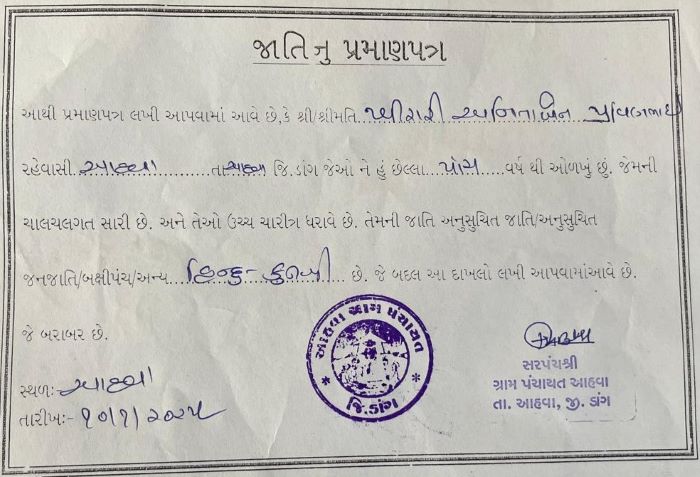 જાતિનુ પ્રમાણપત્ર
આથી પ્રમાણપત્ર લખી આપવામાં આવે છે,કે શ્રી/શ્રીમતિ.. અનિતાબેન પ્રવિણભાઇ
રહેવાસી..આહવા......તા.આહવા જિ.ડાંગ જેઓ ને હું છેલ્લા...પાંચ....વર્ષ થી ઓળખું છું. જેમની
ચાલચલગત સારી છે. અને તેઓ ઉચ્ચ ચારીત્ર ધરાવે છે. તેમની જાતિ અનુસુચિત જાતિ/અનુસુચિત
જનજાતિ/બક્ષીપંચ/અન્ય...હિન્દુ-કુનબી...છે. જે બદલ આ દાખલો લખી આપવામાંઆવે છે.
જે બરાબર છે.
આહવા ગ્રામ પંચાયત
જિ.ડાંગ
સરપંચશ્રી
ગ્રામ પંચાયત આહવા
તા. આહવા, જી. ડાંગ
સ્થળ:આહવા
તારીખ:-૧૦/૧/૨૦૨૫